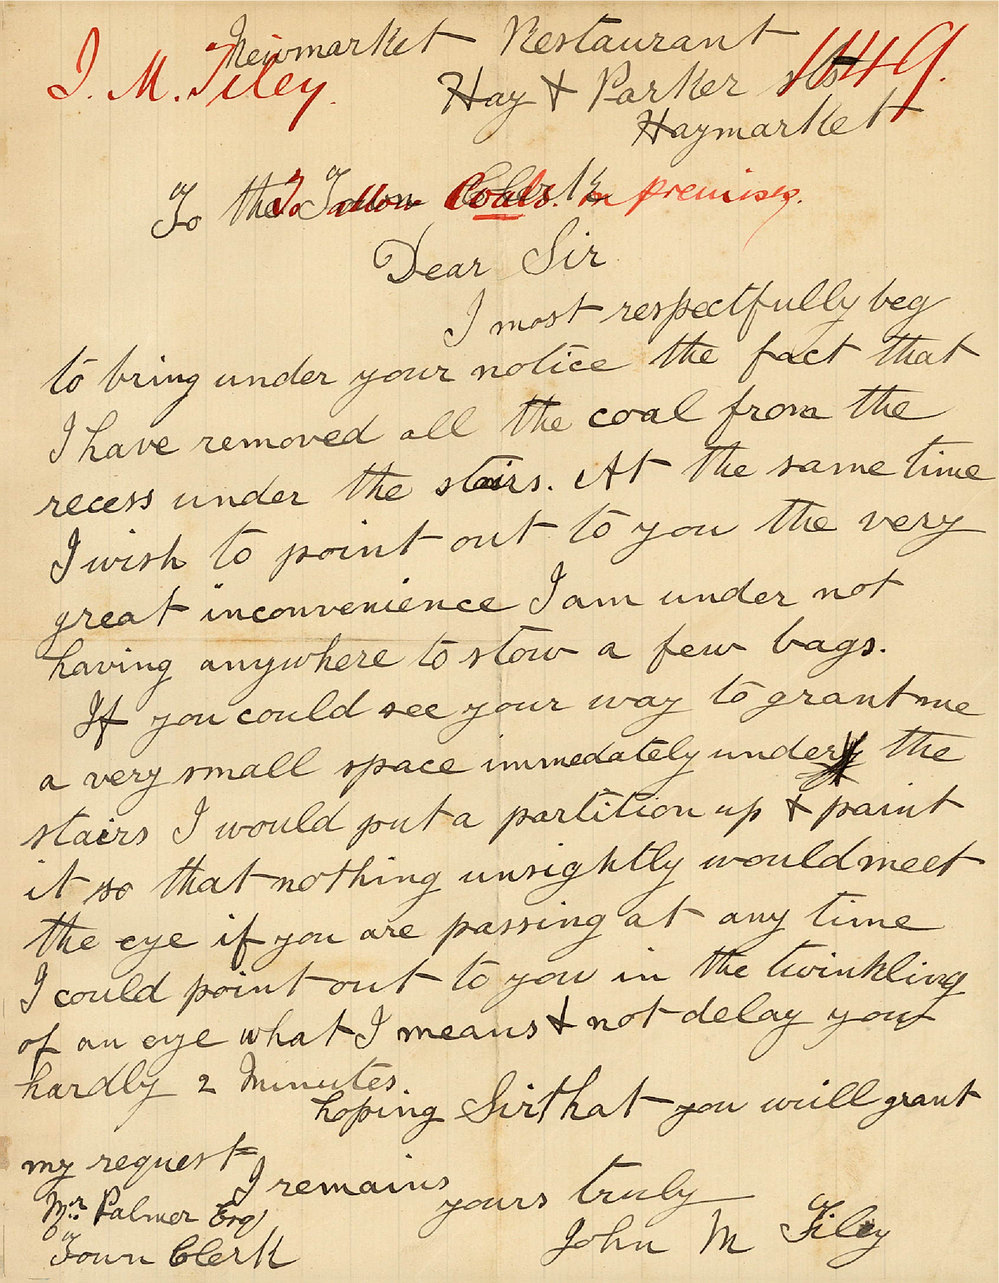 Newmarket Restaurant
J. M. Tiley.
1649.
Hay & Parker sts
Haymarket
To the Town Clerk
To allow Coals. on premises.
Dear Sir
I most respectfully beg
to bring under your notice the fact that
I have removed all the coal from the
recess under the stairs. At the same time
I wish to point out to you the very
great inconvenience I am under not
having anywhere to stow a few bags.
If you could see your way to grant me
a very small space immedately under the
stairs I would put a partition up & paint
it so that nothing unsightly would meet
the eye if you are passing at any time
I could point out to you in the twinkling
of an eye what I means & not delay you
hardly 2 Minutes.
hoping Sir that you will grant
my request
I remains
yours truly
John M Tiley
Mr. Palmer Esq
Town Clerk